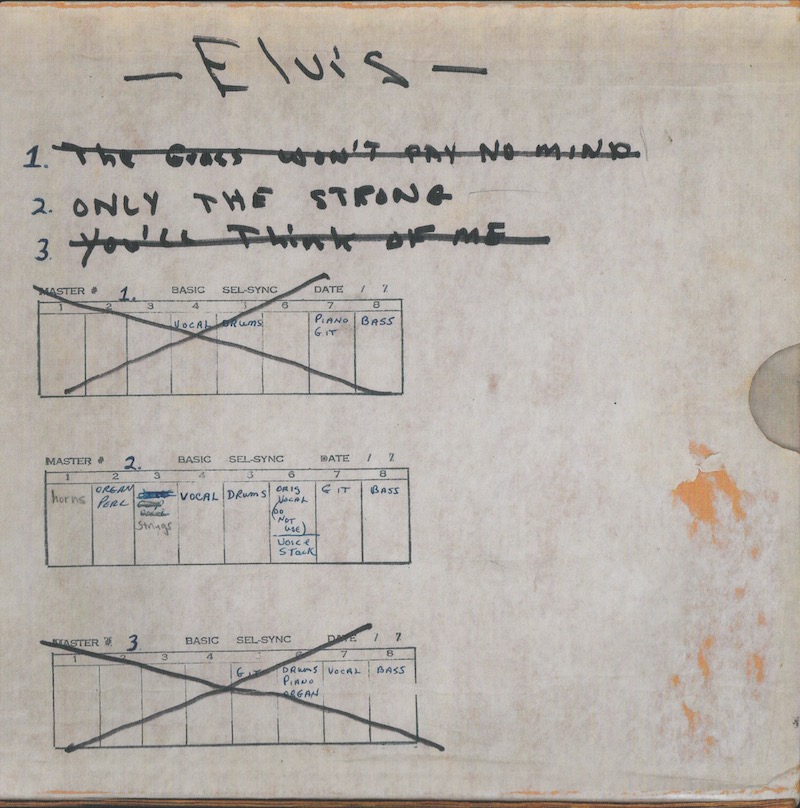 — Elvis —
1. The Grass WON'T PAY NO MIND
2. ONLY THE STRONG
3. You'll Think OF ME
MASTER # 1. BASIC SEL-SYNC DATE / 7
1 2 3 4 5 6 7 8
VOCAL DRUMS PIANO GIT BASS
MASTER # 2. BASIC SEL-SYNC DATE / 7
1 2 3 4 5 6 7 8
horns ORGAN PERC Strings VOCAL DRUMS ORIG VOCAL (DO NOT USE) VOICE STACK GIT BASS
MASTER # 3 BASIC SEL-SYNC DATE / 7
1 2 3 4 5 6 7 8
GIT DRUMS PIANO ORGAN VOCAL BASS